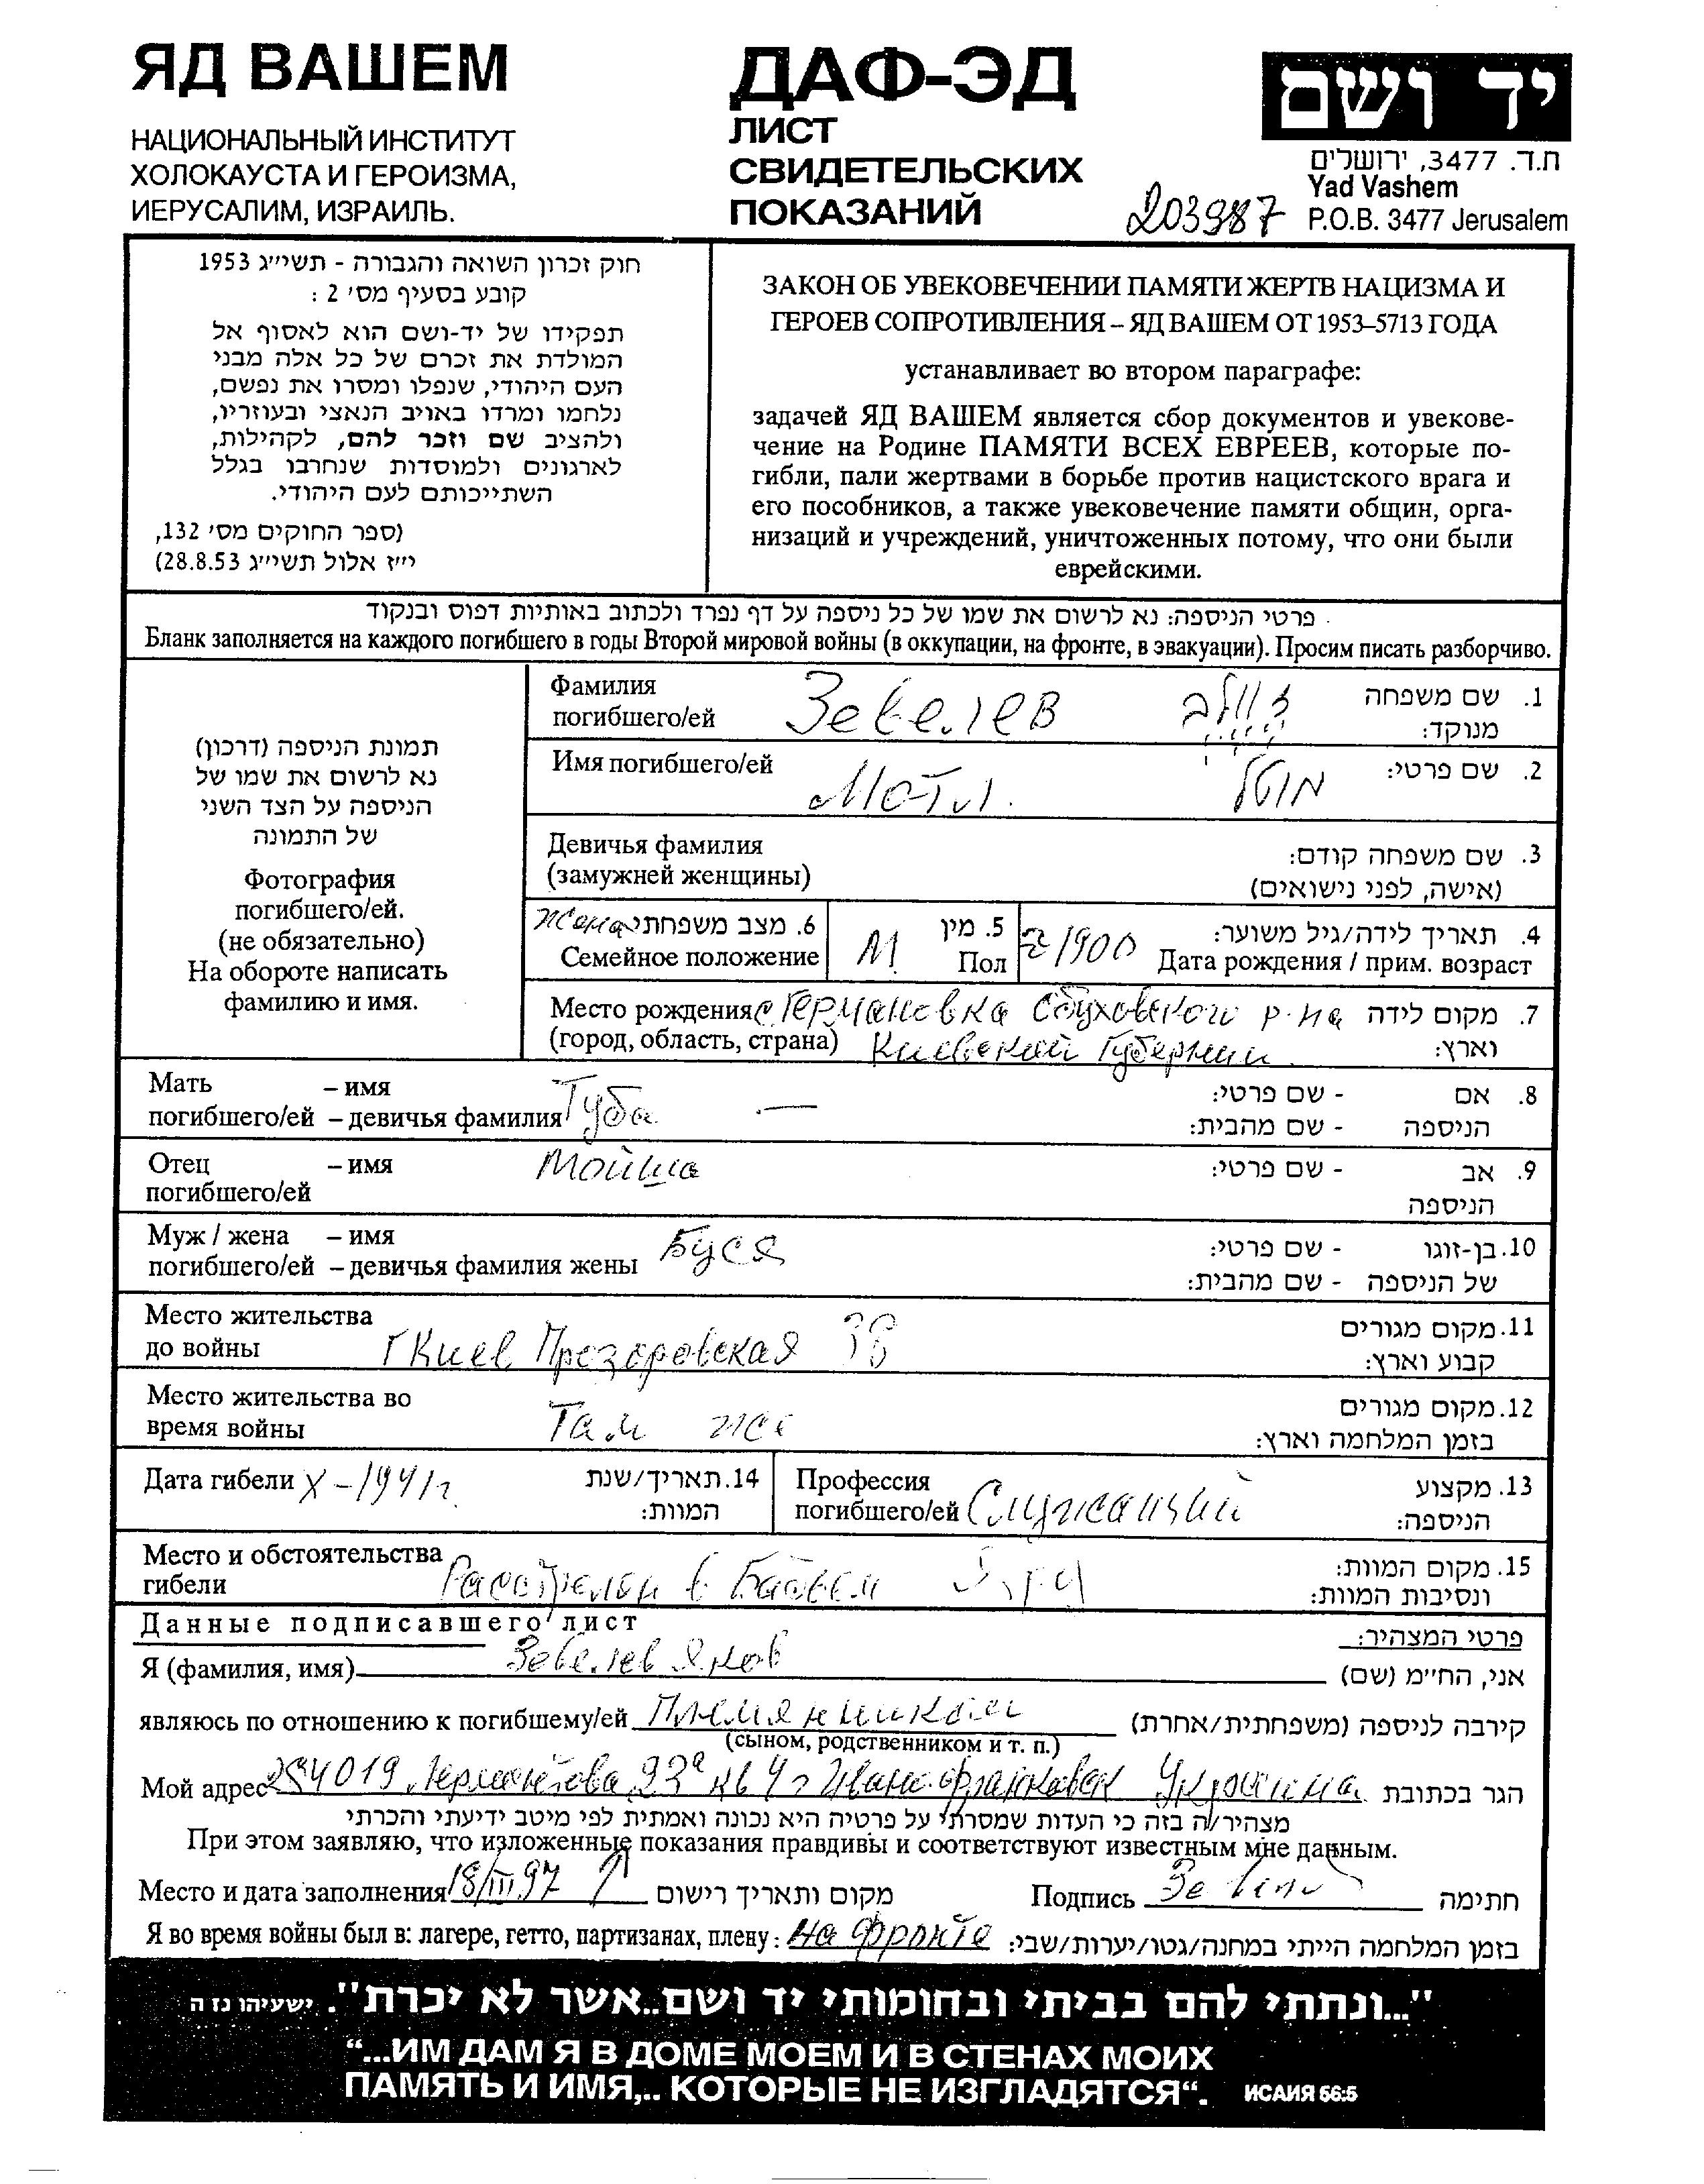 ЯД ВАШЕМ
НАЦИОНАЛЬНЫЙ ИНСТИТУТ
ХОЛОКАУСТА И ГЕРОИЗМА,
ИЕРУСАЛИМ, ИЗРАИЛЬ.
ДАФ-ЭД
ЛИСТ
СВИДЕТЕЛЬСКИХ
ПОКАЗАНИЙ
203987
יד ושם
ת.ד. 3477, ירושלים
Yad Vashem
P.O.B. 3477 Jerusalem
חוק זכרון השואה והגבורה - תשי״ג 1953
קובע בסעיף מס׳ 2 :
תפקידו של יד-ושם הוא לאסוף אל
המולדת את זכרם של כל אלה מבני
העם היהודי, שנפלו ומסרו את נפשם,
נלחמו ומרדו באויב הנאצי ובעוזריו,
ולהציב שם וזכר להם, לקהילות,
לארגונים ולמוסדות שנחרבו בגלל
השתייכותם לעם היהודי.
(ספר החוקים מס׳ 132,
י״ז אלול תשי״ג 28.8.53)
ЗАКОН ОБ УВЕКОВЕЧЕНИИ ПАМЯТИ ЖЕРТВ НАЦИЗМА И
ГЕРОЕВ СОПРОТИВЛЕНИЯ – ЯД ВАШЕМ ОТ 1953–5713 ГОДА
устанавливает во втором параграфе:
задачей ЯД ВАШЕМ является сбор документов и увекове-
чение на Родине ПАМЯТИ ВСЕХ ЕВРЕЕВ, которые по-
гибли, пали жертвами в борьбе против нацистского врага и
его пособников, а также увековечение памяти общин, орга-
низаций и учреждений, уничтоженных потому, что они были
еврейскими.
פרטי הניספה: נא לרשום את שמו של כל ניספה על דף נפרד ולכתוב באותיות דפוס ובנקוד
Бланк заполняется на каждого погибшего в годы Второй мировой войны (в оккупации, на фронте, в эвакуации). Просим писать разборчиво.
תמונת הניספה (דרכון)
נא לרשום את שמו של
הניספה על הצד השני
של התמונה
Фотография
погибшего/ей.
(не обязательно)
На обороте написать
фамилию и имя.
Фамилия
погибшего/ей Зевелев
1. שם משפחה
מנוקד:
Имя погибшего/ей Мотл
2. שם פרטי: מוטל
Девичья фамилия
(замужней женщины)
3. שם משפחה קודם:
(אישה, לפני נישואים)
6. מצב משפחתי
Семейное положение
5. מין
Пол М
4. תאריך לידה/גיל משוער:
Дата рождения / прим. возраст 1900
Место рождения с Германовка Обуховского р-на
(город, область, страна) Киевской губернии
7. מקום לידה
וארץ:
Мать – имя Туба
погибшего/ей – девичья фамилия —
8. אם - שם פרטי:
הניספה - שם מהבית:
Отец – имя Мойша
погибшего/ей
9. אב - שם פרטי:
הניספה
Муж / жена – имя Буся
погибшего/ей – девичья фамилия жены
10. בן-זוגו - שם פרטי:
של הניספה - שם מהבית:
Место жительства
до войны г Киев Прозоровская 38
11. מקום מגורים
קבוע וארץ:
Место жительства во
время войны Там же
12. מקום מגורים
בזמן המלחמה וארץ:
Дата гибели X – 1941 г.
14. תאריך/שנת
המוות:
Профессия
погибшего/ей Служащий
13. מקצוע
הניספה:
Место и обстоятельства
гибели Расстрелян в Бабьем Яру
15. מקום המוות:
ונסיבות המוות:
Данные подписавшего лист
פרטי המצהיר:
Я (фамилия, имя) Зевелев Яков
אני, הח״מ (שם)
являюсь по отношению к погибшему/ей Племянником
קירבה לניספה (משפחתית/אחרת)
(сыном, родственником и т. п.)
Мой адрес 284019 Лермонтова 23а кв 4 г Ивано-Франковск Украина
הגר בכתובת
מצהיר/ה בזה כי העדות שמסרתי על פרטיה היא נכונה ואמתית לפי מיטב ידיעתי והכרתי
При этом заявляю, что изложенные показания правдивы и соответствуют известным мне данным.
Место и дата заполнения 18/III.97
מקום ותאריך רישום
Подпись
חתימה
Я во время войны был в: лагере, гетто, партизанах, плену: На фронте
בזמן המלחמה הייתי במחנה/גטו/יערות/שבי:
"...ונתתי להם בביתי ובחומותי יד ושם..אשר לא יכרת". ישעיהו נז ה
“...ИМ ДАМ Я В ДОМЕ МОЕМ И В СТЕНАХ МОИХ
ПАМЯТЬ И ИМЯ,.. КОТОРЫЕ НЕ ИЗГЛАДЯТСЯ“. ИСАИЯ 56:5